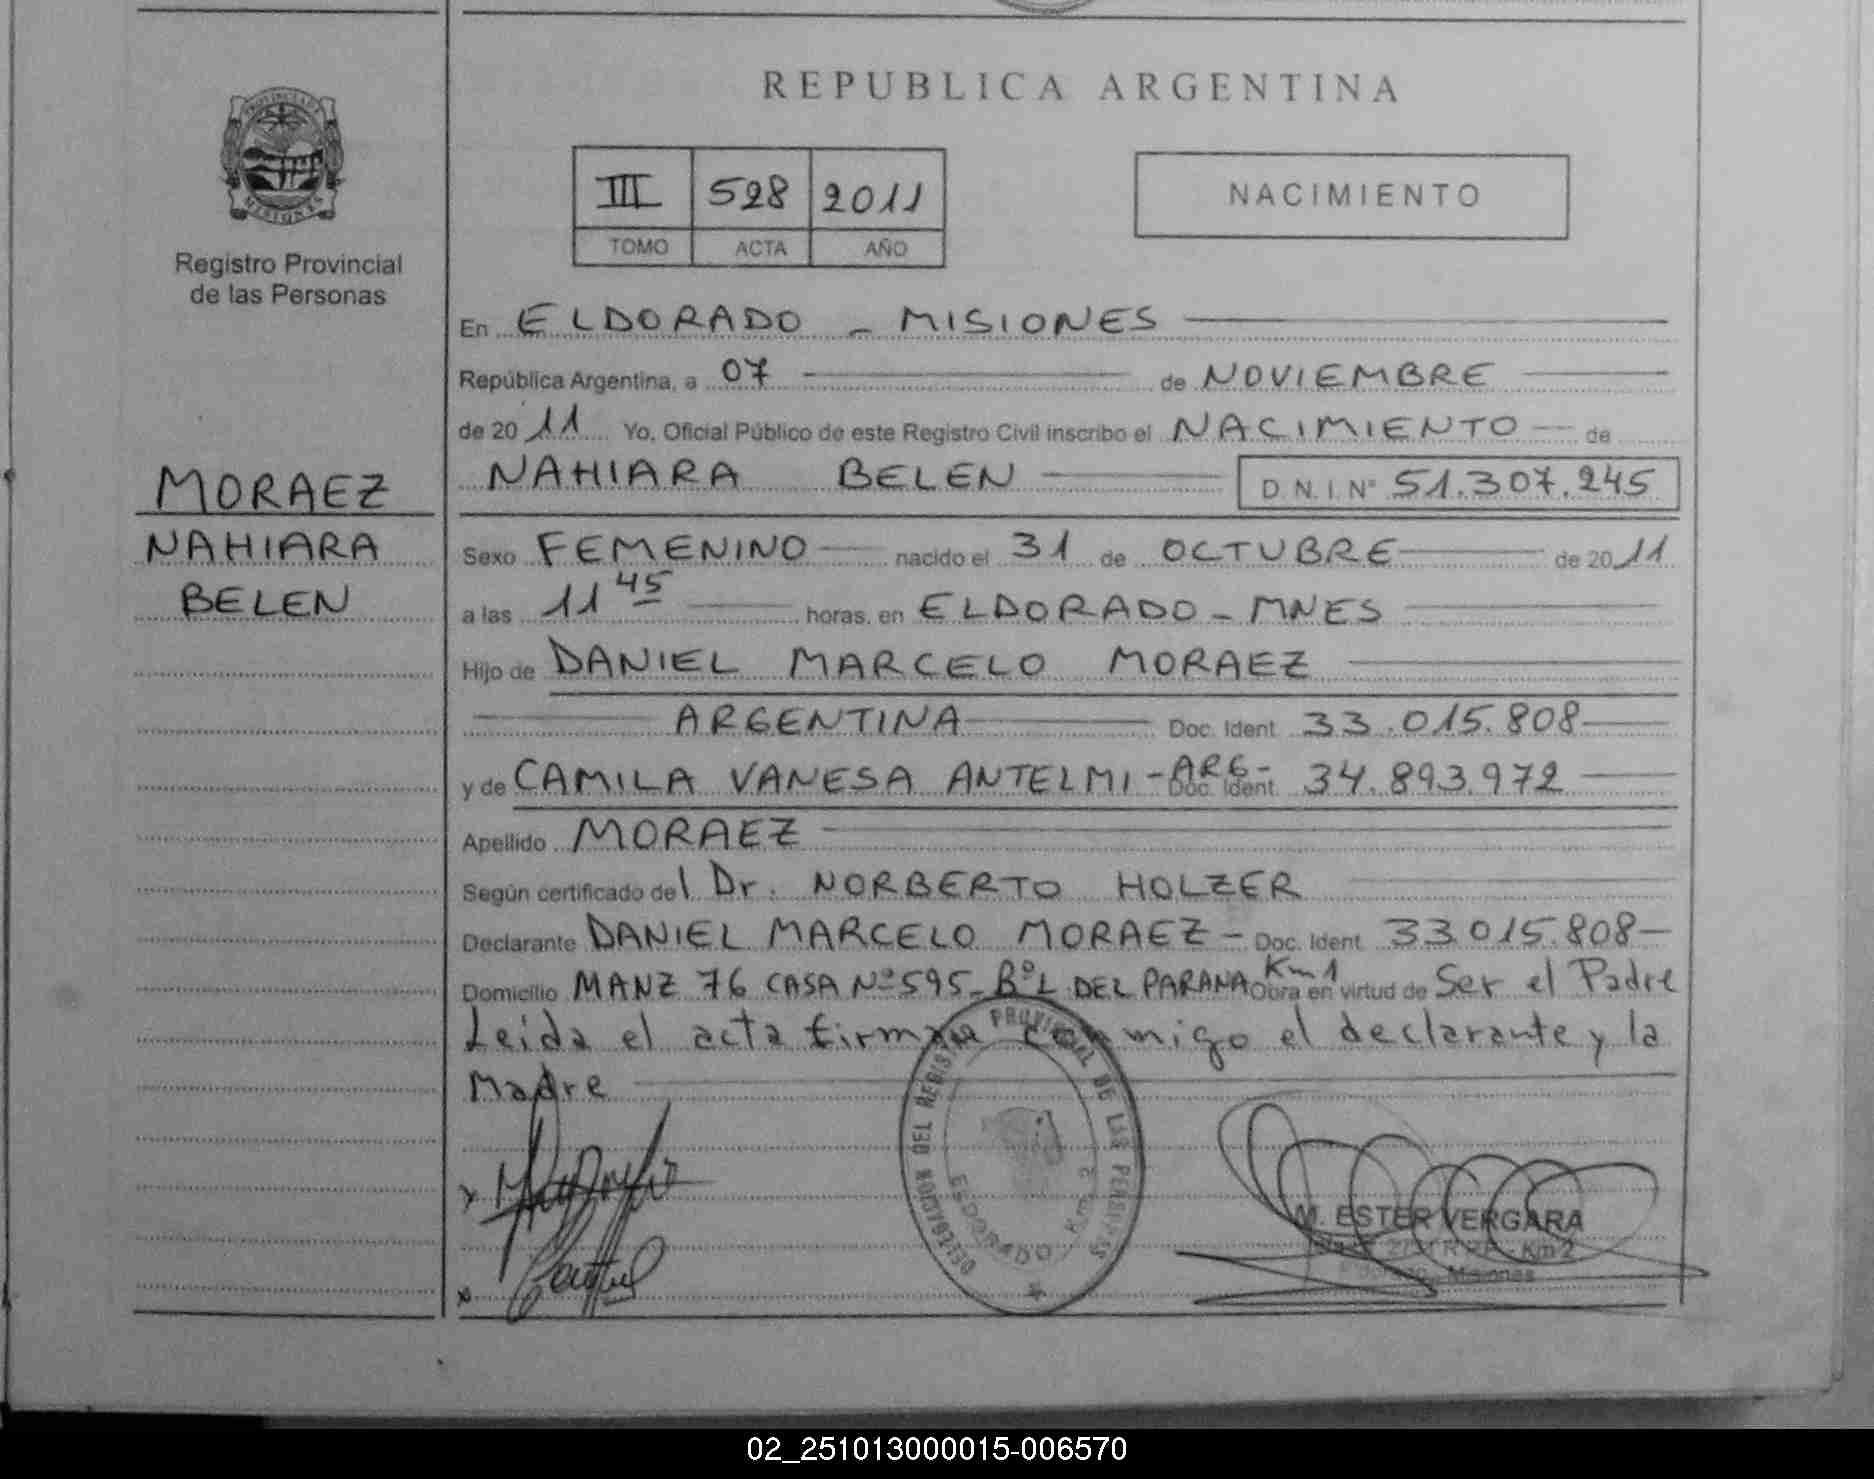 REPUBLICA ARGENTINA
PROVINCIA DE
MISIONES
Registro Provincial
de las Personas
III 528 2011
TOMO ACTA AÑO
NACIMIENTO
MORAEZ
NAHIARA
BELEN
En ELDORADO - MISIONES
República Argentina, a 07 de NOVIEMBRE
de 2011 Yo, Oficial Público de este Registro Civil inscribo el NACIMIENTO de
NAHIARA BELEN D.N.I. Nº 51.307.245
Sexo FEMENINO nacido el 31 de OCTUBRE de 2011
a las 11 45 horas, en ELDORADO - MNES
Hijo de DANIEL MARCELO MORAEZ
ARGENTINA Doc. Ident 33.015.808
y de CAMILA VANESA ANTELMI - ARG - Doc. Ident. 34.893.972
Apellido MORAEZ
Según certificado del Dr. NORBERTO HOLZER
Declarante DANIEL MARCELO MORAEZ - Doc. Ident 33.015.808
Domicilio MANZ 76 CASA Nº 595 - Bº L. DEL PARANA Km 1 Obra en virtud de Ser el Padre
Leida el acta firman conmigo el declarante y la
Madre
DELEGACION DEL REGISTRO PROVINCIAL DE LAS PERSONAS
ELDORADO Km. 2
M. ESTER VERGARA
Km 2
Misiones
02_251013000015-006570